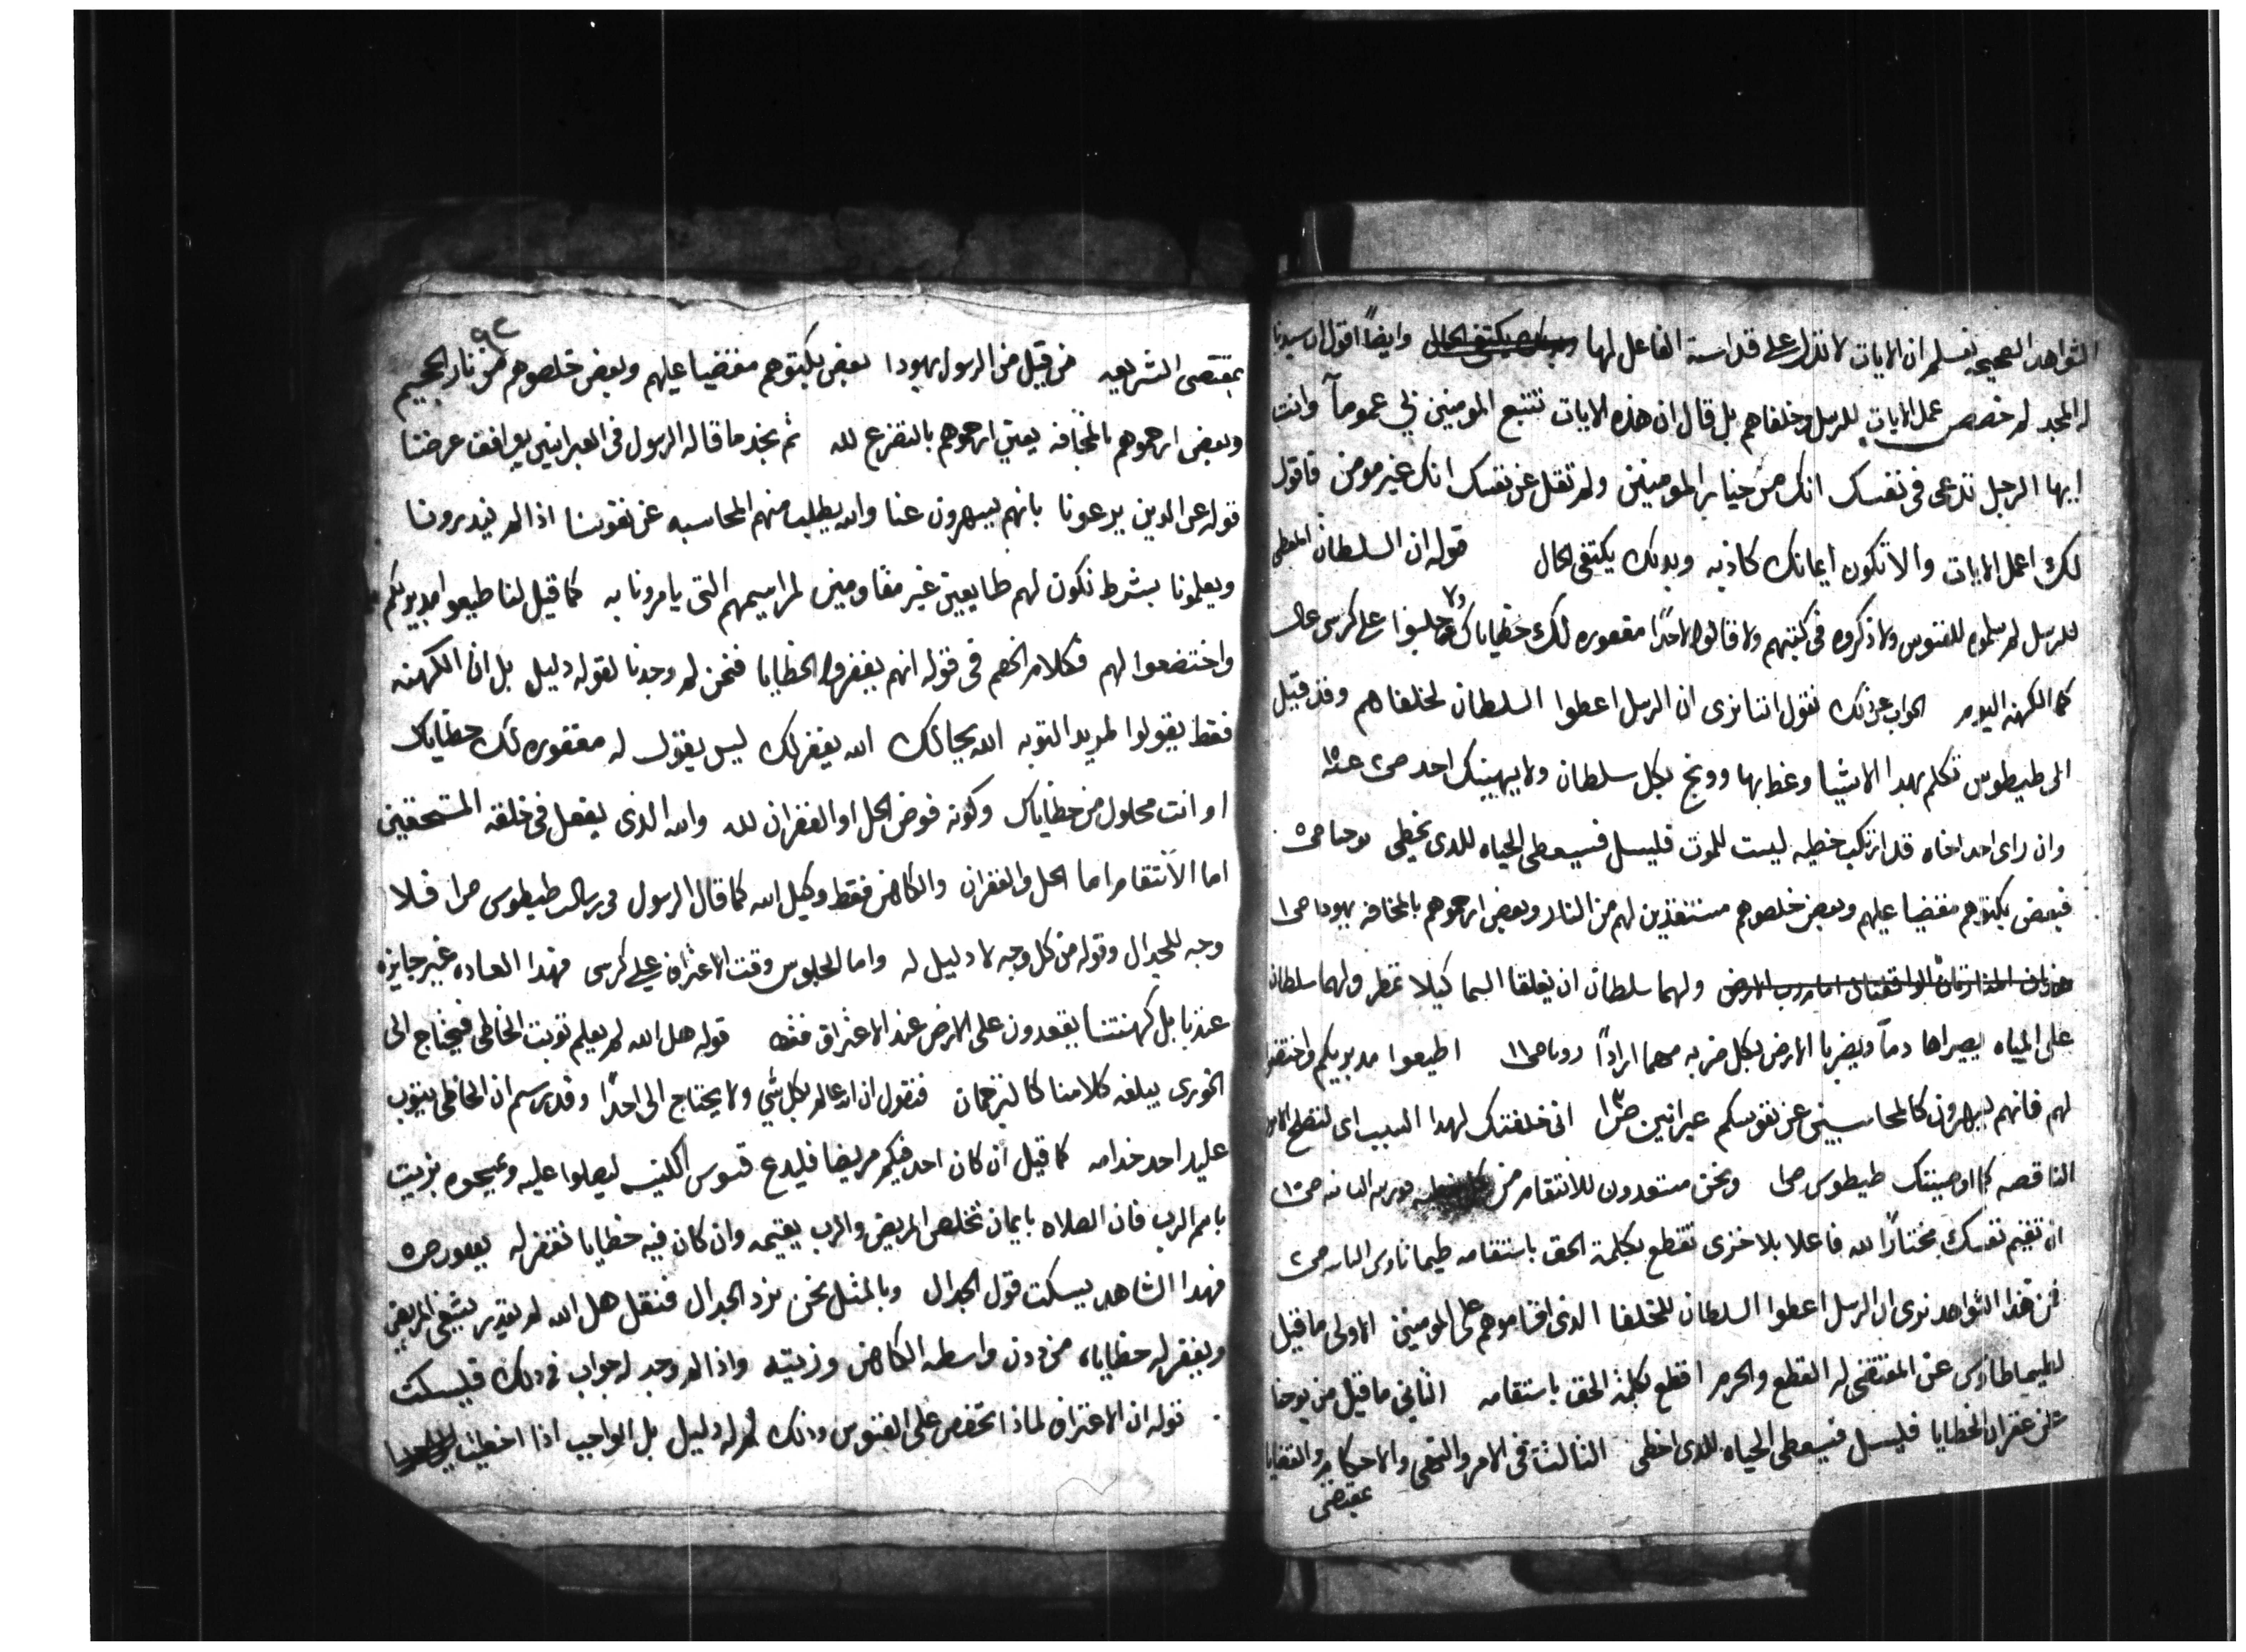 الشواهد الصحيحه نعلم ان الايات لا تدل على قداسة الفاعل لها وايضاً اقول ان سيدنا
له المجد لم خصص عمل الايات للرسل وخلفاهم بل قال ان هذه الايات تتبع المومنين بي عموماً وانت
ايها الرجل تدعى فى نفسك انك من خيار المومنين ولم تقل عن نفسك انك غير مومن فاقول
لك اعمل الايات والا تكون ايمانك كاذبه وبدلك يكتفى الحال قوله ان السلطان المعطى
للرسل لم سلموه للقسوس ولا ذكروه فى كتبهم ولا قالوا لاحداً مغفوره لك خطاياك ولا جلسوا على كرسى عال
كما الكهنه اليوم الجواب عن ذلك نقول اننا نرى ان الرسل اعطوا السلطان لخلفاهم وقد قيل
الى طيطوس تكلم بهدا الاشيا وعظ بها ووبخ بكل سلطان ولا يهينك احد ص٢ عد١٥
وان راى احد اخاه قد ارتكب خطيه ليست للموت فليسل فسيعطى الحياه للدى يخطى يوحنا ص٥
فبعض بكتوهم مقضيا عليهم وبعض خلصوهم مستنقذين لهم من النار وبعض ارحموهم بالمخافه يهودا ص١
ولهما سلطان ان يغلقا السما كيلا تمطر ولهما سلطان
على المياه يصيراها دماً ويضربا الارض بكل ضربه مهما ارادًا رويا ص١١ اطيعوا مدبريكم واختضعو
لهم فانهم يسهرون كالمحاسبين عن نفوسكم عبرانيين ص١٣ انى خلفتك لهدا السبب اى لتصلح الامور
الناقصه كما اوصيتك طيطوس ص١ ونحن مستعدون للانتقام من ص١٠
ان تقيم نفسك مختاراً لله فاعلا بلا خزى تقطع بكلمة الحق باستقامه طيماثاوس الثانيه ص٢
فمن هذا الشواهد نرى ان الرسل اعطوا السلطان للخلفا الذى اقاموهم على المومنين الاولى ما قيل
لطيماطاوس عن المقتضى له القطع والحرم اقطع بكلمة الحق باستقامه الثانى ما قيل من يوحنا
عن غفران الخطايا فليسل فسيعطى الحياه للدى اخطى الثالثه فى الامر والنهى والاحكام والقضايا
بمقتضى
٩٢
بمقتضى الشريعه من قبل من الرسول يهودا بعض بكتوهم مقضيا عليهم وبعض خلصوهم من نار الجحيم
وبعض ارحموهم بالمخافه يعنى ارحموهم بالتضرع لله ثم نجد ما قاله الرسول فى العبرانيين يوافق غرضنا
قوله عن الدين يرعونا بانهم يسهرون عنا والله يطلب منهم المحاسبه عن نفوسنا اذا لم ينذرونا
ويعلمونا بشرط نكون لهم طايعين غير مقاومين لمراسيمهم التى يامرونا به كما قيل لنا طيعوا مدبريكم
واختضعوا لهم فكلام الخصم فى قوله انهم يغفروا الخطايا فنحن لم وجدنا لقوله دليل بل ان الكهنه
فقط يقولوا لمريد التوبه الله يحالك الله يغفر لك ليس يقول له مغفوره لك خطاياك
او انت محلول من خطاياك وكونه فوض الحل او الغفران لله والله الذى يفعل فى خلقه المستحقين
اما الانتقام اما الحل والغفران والكاهن فقط وكيل الله كما قال الرسول فى رسالة طيطوس ص١ فلا
وجه للجدال وقوله من كل وجه لا دليل له واما الجلوس وقت الاعتراف على كرسى فهدا العاده غير جايزه
عندنا بل كهنتنا يقعدون على الارض عند الاعتراف قوله هل الله لم يعلم توبت الخاطى فيحتاج الى
الخورى يبلغه كلامنا كالترجمان فنقول ان الله عالم بكل شي ولا يحتاج الى احداً وقد رسم ان الخاطى يتوب
على يد احد خدامه كما قيل ان كان احد فيكم مريضا فليدع قسوس الكنيسه ليصلوا عليه ويمسحوه بزيت
باسم الرب فان الصلاه بايمان تخلص المريض والرب يقيمه وان كان فيه خطايا تغفر له يعقوب ص٥
فهدا الشاهد يسكت قول الجدال وبالمثل نحن نرد الجدال فنقل هل الله لم يقدر يشفى المريض
ويغفر له خطاياه من دون واسطه الكاهن وزيته واذا لم وجد له جواب فى دلك فليسكت
قوله ان الاعتراف لماذا تخصص على القسوس ودلك لم له دليل بل الواجب اذا اخطينا